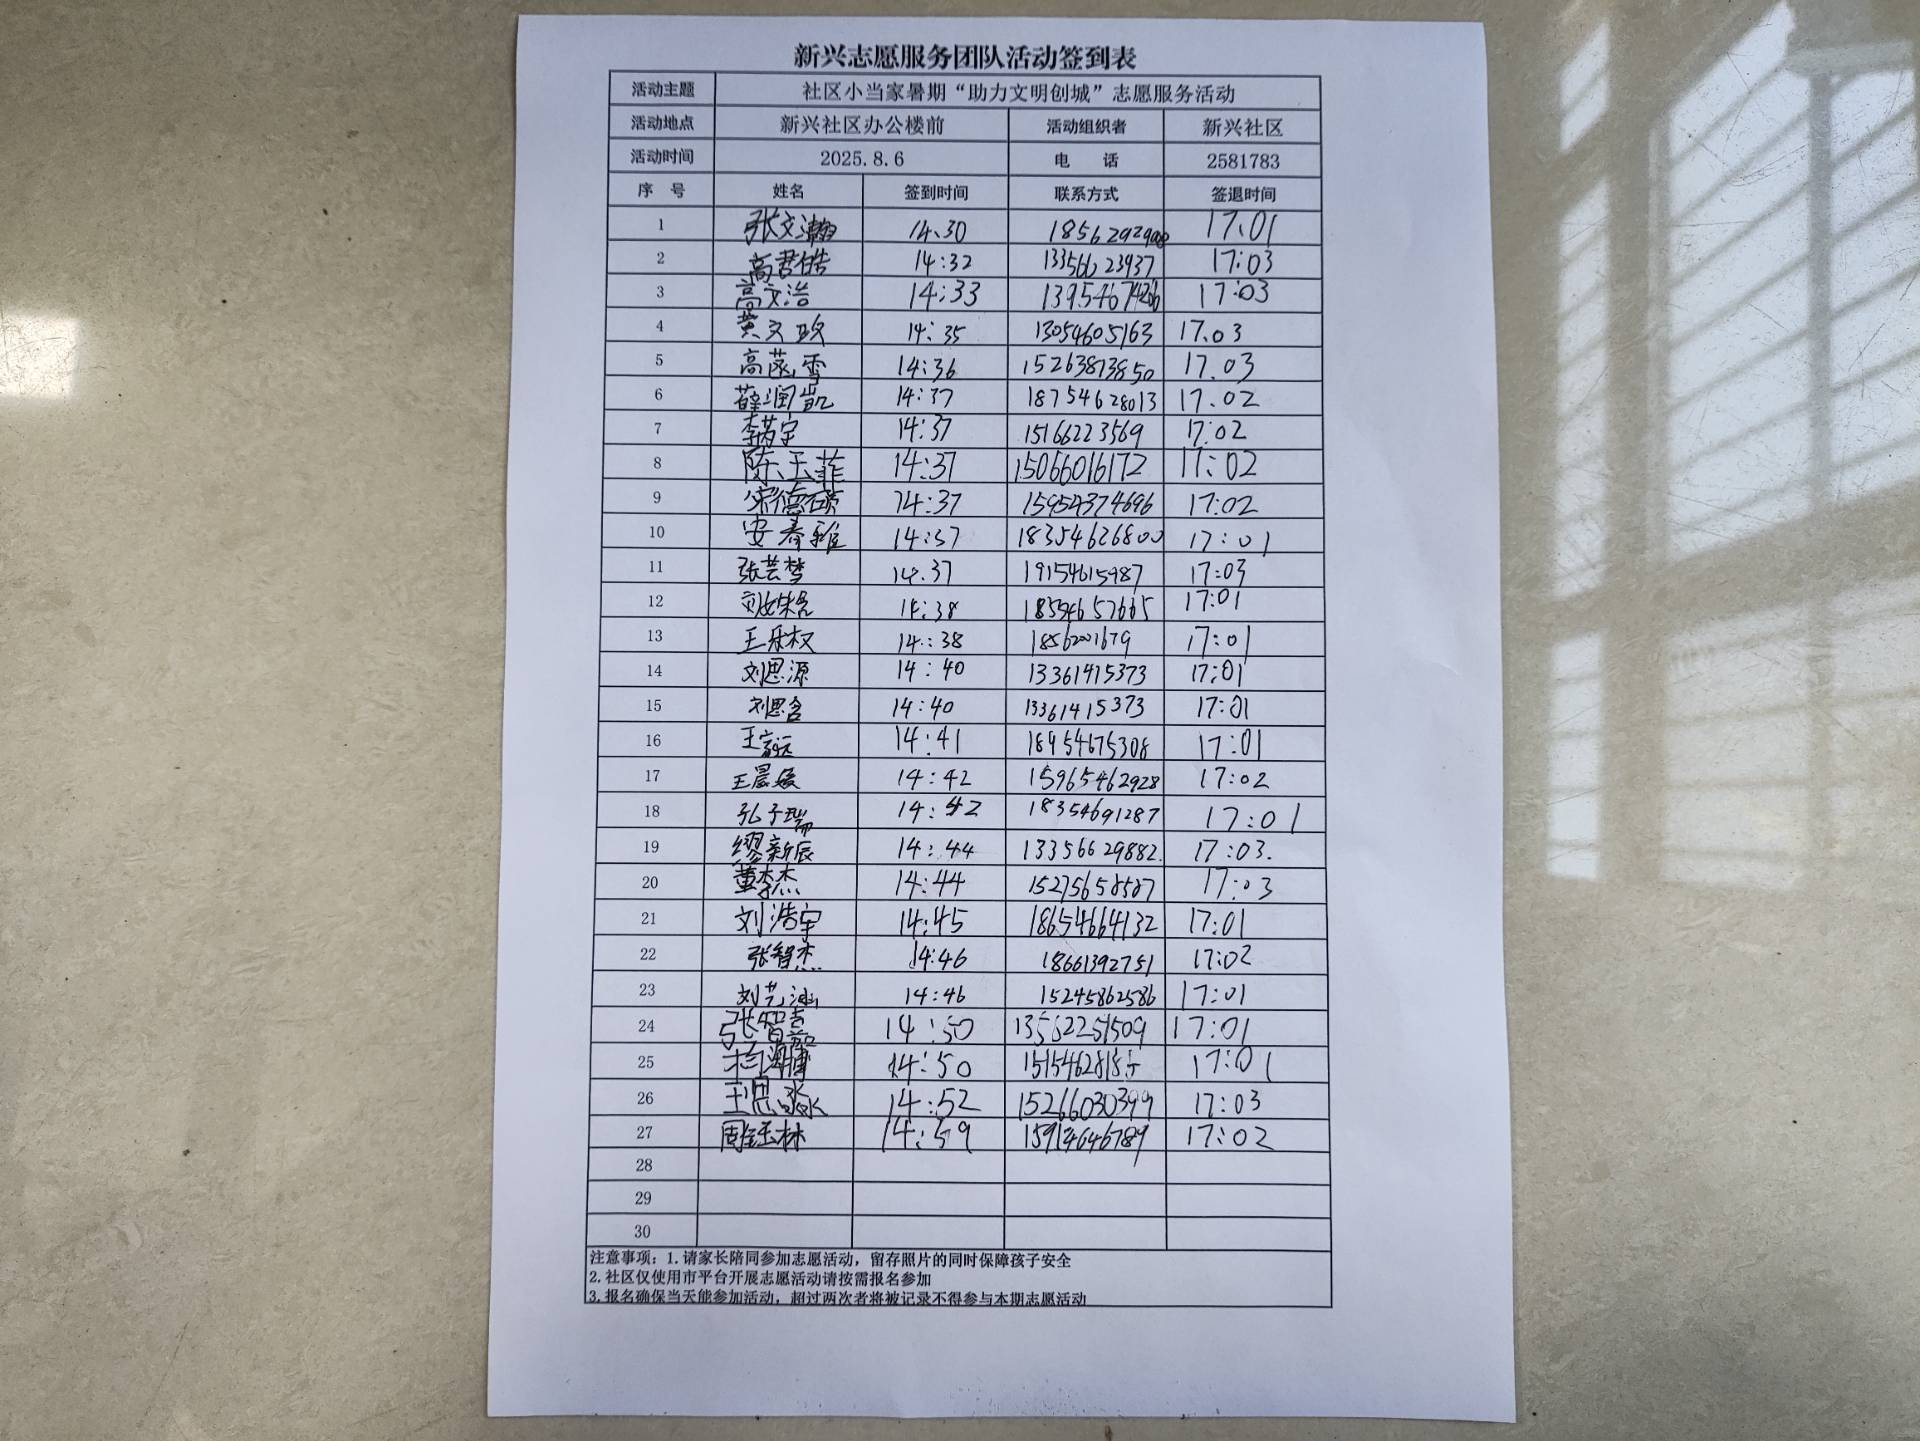 新兴志愿服务团队活动签到表
活动主题 社区小当家暑期“助力文明创城”志愿服务活动
活动地点 新兴社区办公楼前 活动组织者 新兴社区
活动时间 2025.8.6 电 话 2581783
序 号 姓名 签到时间 联系方式 签退时间
1 张文瀚 14.30 17.01
2 高君皓 14:32 13356623937 17:03
3 高文浩 14:33 17:03
4 黄文政 14:35 13054605163 17.03
5 高菡雪 14:36 15263873850 17.03
6 薛润凯 14:37 18754628013 17.02
7 李芮宇 14:37 15166223569 17:02
8 陈玉菲 14:37 15066016172 17:02
9 宋德硕 14:37 15954374696 17:02
10 安春雅 14:37 18354626800 17:01
11 张芸梦 14.37 19154615987 17:03
12 14:38 17:01
13 王乐权 14:38 17:01
14 刘思源 14:40 13361415373 17:01
15 刘思含 14:40 13361415373 17:01
16 王 远 14:41 18954675308 17:01
17 王晨 14:42 15965462928 17:02
18 张子瑞 14:42 18354691287 17:01
19 缪新辰 14:44 13356629882. 17:03.
20 董李杰 14:44 15275658587 17:03
21 刘浩宇 14:45 18654664132 17:01
22 张智杰 14:46 18661392751 17:02
23 刘艺涵 14:46 15245862586 17:01
24 张智嘉 14:50 13562251509 17:01
25 14:50 17:01
26 王思 14:52 15266030399 17:03
27 周钰林 14:59 15914646789 17:02
28
29
30
注意事项：1.请家长陪同参加志愿活动，留存照片的同时保障孩子安全
2.社区仅使用市平台开展志愿活动请按需报名参加
3.报名确保当天能参加活动，超过两次者将被记录不得参与本期志愿活动